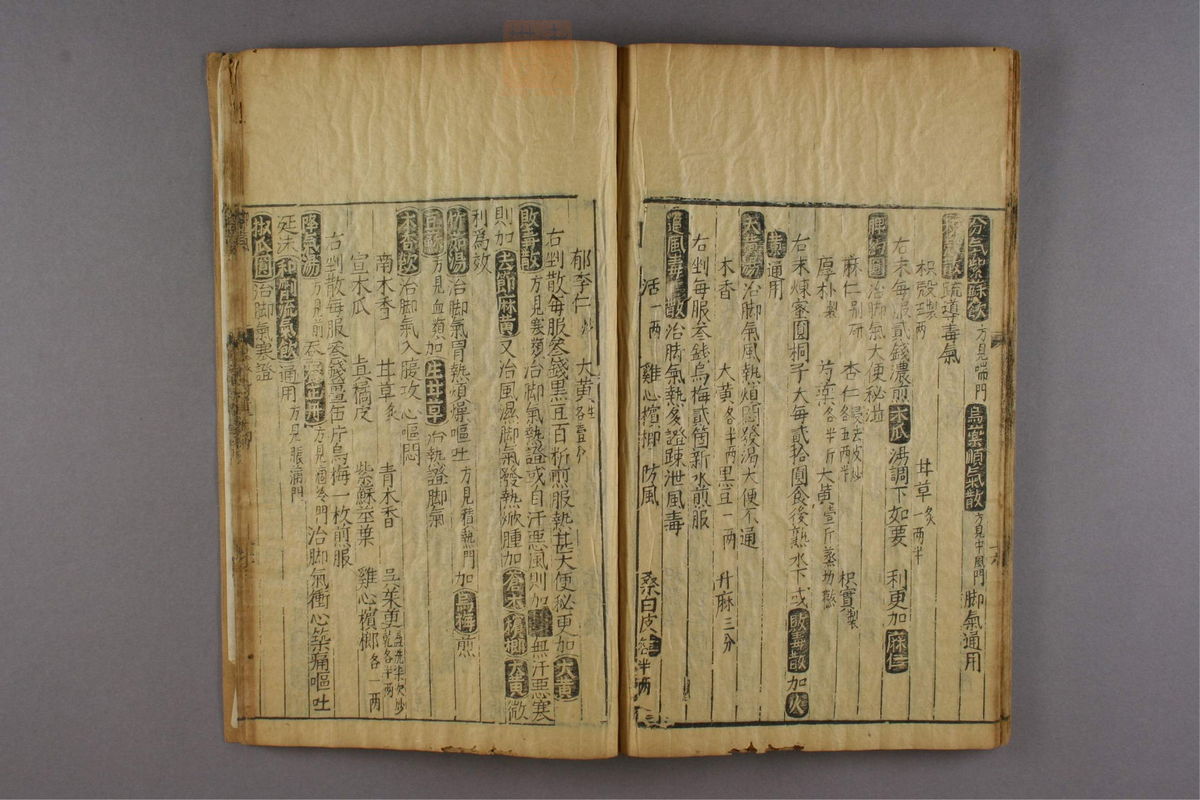 分氣紫蘇飲 方見喘門 烏藥順氣散 方見中風門 脚氣通用
散 疏導毒氣
枳殼製 五兩 甘草炙 一兩半
右末每服貳錢濃煎木瓜湯調下如要 利更加麻仁
脾約圓 治脚氣大便秘澁
麻仁別研 杏仁 去皮炒 各五兩半 枳實製
厚朴製 芍藥各半斤 大黃壹斤蒸
右末煉蜜圓桐子大每貳拾圓食後熟水下或敗毒散加大
黃通用
大黃湯 治脚氣風熱煩悶發湯大便不通
木香 大黃各半兩 黑豆一兩 升麻三分
右剉每服叁錢烏梅貳箇新水煎服
追風毒散 治脚氣熱多證疎泄風毒
活一兩 雞心檳榔 防風 桑白皮各半兩
郁李仁炒 大黃生各壹分
右剉散每服叁錢黑豆百粒煎服熱甚大便秘更加大黃
敗毒散 方見寒類 治脚氣熱證或自汗惡風則加 無汗惡寒
則加去節麻黃又治風濕脚氣發熱掀腫加蒼朮檳榔大黃微
利為效
竹茹湯 治脚氣胃熱煩燥嘔吐 方見積熱門 加烏梅煎
五苓散 方見血類 加生甘草 治熱證脚氣
木香飲 治脚氣入腹攻心嘔悶
南木香 甘草炙 青木香 吳茱萸
宣木瓜 真橘皮 紫蘇莖葉 雞心檳榔各一兩
右剉散每服叁錢薑伍片烏梅一枚煎服
降氣湯 方見前 吞 方見痼冷門 治脚氣衝心築痛嘔吐
延沫和劑流氣飲通用 方見脹滿門
椒瓜圓 治脚氣寒證